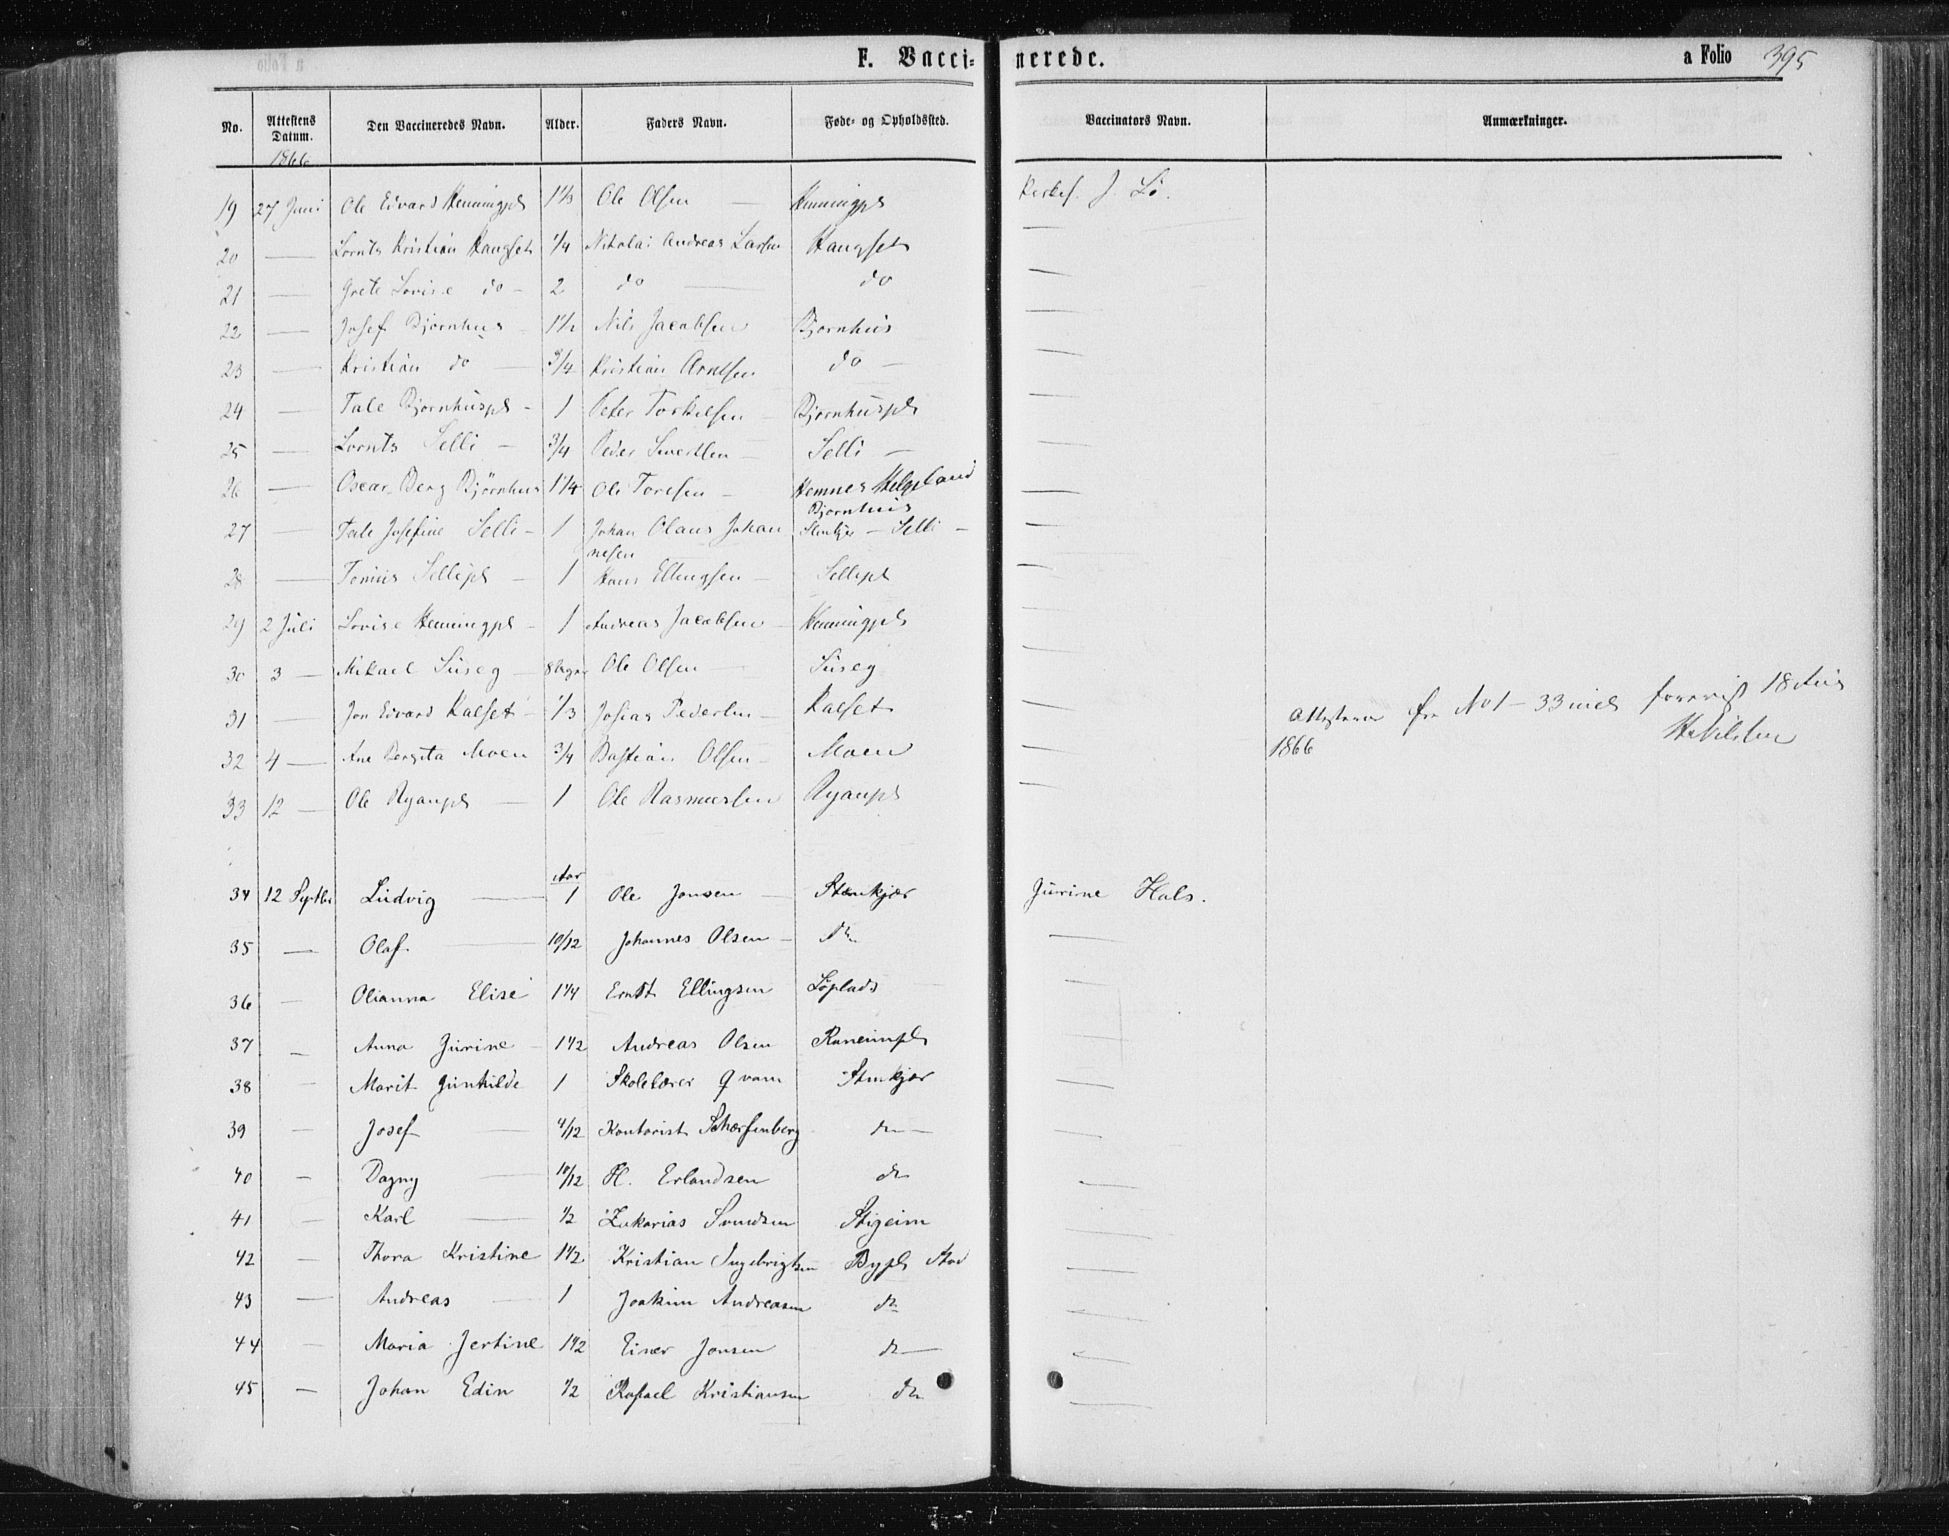 F. Vaccinerede. a Folio 395
No. Attestens Datum. Den Vaccineredes Navn. Alder. Faders Navn. Føde- og Opholdssted. Vaccinators Navn. Anmærkninger.
1866
19 27 Juni Ole Edvard Henningpl 1 1/3 Ole Olsen — Henningpl J. Lø.
20 — Lornts Kristian Haugset 1/4 Nikolai Andreas Larsen Haugset —
21 — Grete Lovise do — 2 do — do —
22 — Josef Bjørnhus — 1 1/2 Nils Jacobsen Bjornhus —
23 — Kristian do — 3/4 Kristian Arntsen do — —
24 — Tale Bjornhuspl — 1 Peter Torkelsen — Bjornhuspl —
25 — Lornts Selli — 3/4 Peder Sivertsen — Selli — —
26 — Oscar Berg Bjørnhus 1 1/4 Ole Toresen — Hemnes Helgeland —
Bjornhus
27 — Tale Josefine Selli — 1 Johan Olaus Johan Stenkjer — Selli — —
nesen
28 — Tonius Sellipl — 1 Hans Ellingsen — Sellipl —
29 2 Juli Lovise Henningpl — 1 Andreas Jacobsen — Henningpl —
30 3 — Mikael Suseg — 8 Ole Olsen — Suseg —
31 — Jon Edvard Kalset — 1/3 Josias Pedersen — Kalset —
Attesterne fra No 1 — 33 incl foreviist 18 Aug
1866
32 4 — Ane Bergita Moen 3/4 Bastian Olsen — Moen —
33 12 — Ole Ryanpl — 1 Ole Rasmussen Ryanpl —
Aar
34 12 Septbr Ludvig — 1 Ole Jonsen — Stenkjær Jurine Hals.
35 — Olaf — 10/12 Johannes Olsen — do —
36 — Olianna Elise 1 1/4 Ernst Ellingsen Løplads —
37 — Anna Jurine — 1 1/2 Andreas Olsen Raneimpl —
38 — Marit Gunhilde 1 Skolelærer Qvam Stenkjær —
39 — Josef — 4/12 Kontorist Scharfenberg do — —
40 — Dagny — 10/12 H. Erlandsen do —
41 — Karl — 1/2 Zakarias Svendsen Stigeim —
42 — Thora Kristine 1 1/2 Kristian Ingebrigtsen Bypl Stod —
43 — Andreas — 1 Joakim Andreasen do —
44 — Maria Jertine 1 1/2 Einer Jonsen do — —
45 — Johan Edin 1/2 Rafael Kristiansen do —